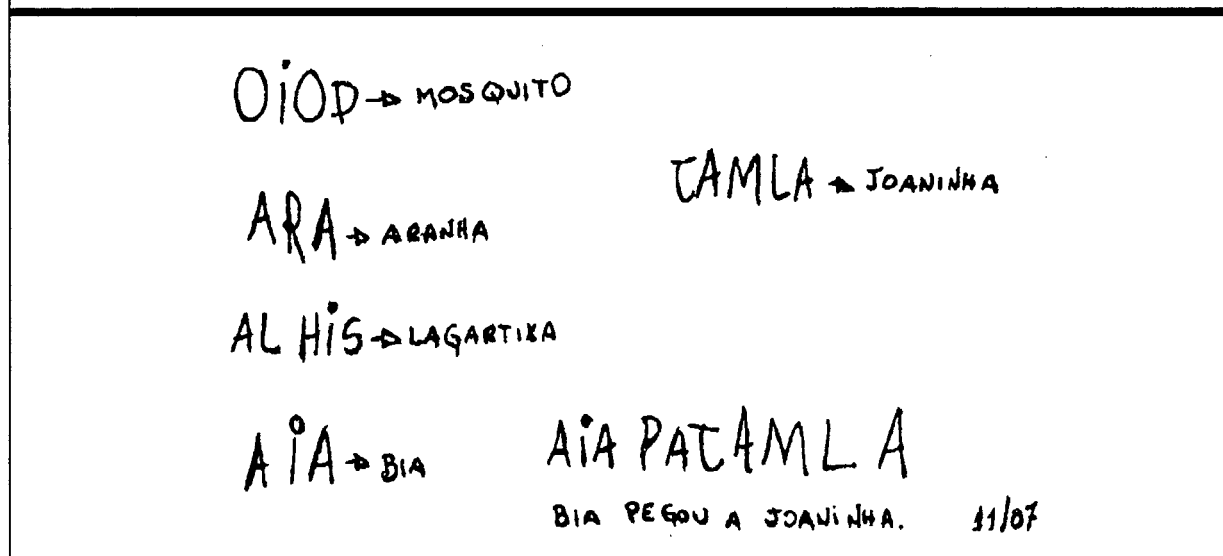 OiOD → MOSQUITO
TAMLA → JOANINHA
ARA → ARANHA
AL HiS → LAGARTIXA
AiA → BIA
AiA PATAMLA
BIA PEGOU A JOANiNHA. 11/07